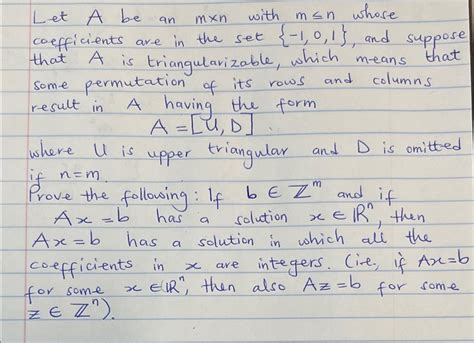 Let A be an m×n with m ≤ n whose
coefficients are in the set {-1,0,1}, and suppose
that A is triangularizable, which means that
some permutation of its rows and columns
result in A having the form
A = [U, D]
where U is upper triangular and D is omitted
if n=m.
Prove the following: If b ∈ ℤᵐ and if
Ax = b has a solution x ∈ ℝⁿ, then
Ax = b has a solution in which all the
coefficients in x are integers. (i.e, if Ax=b
for some x ∈ ℝⁿ, then also Az=b for some
z ∈ ℤⁿ).